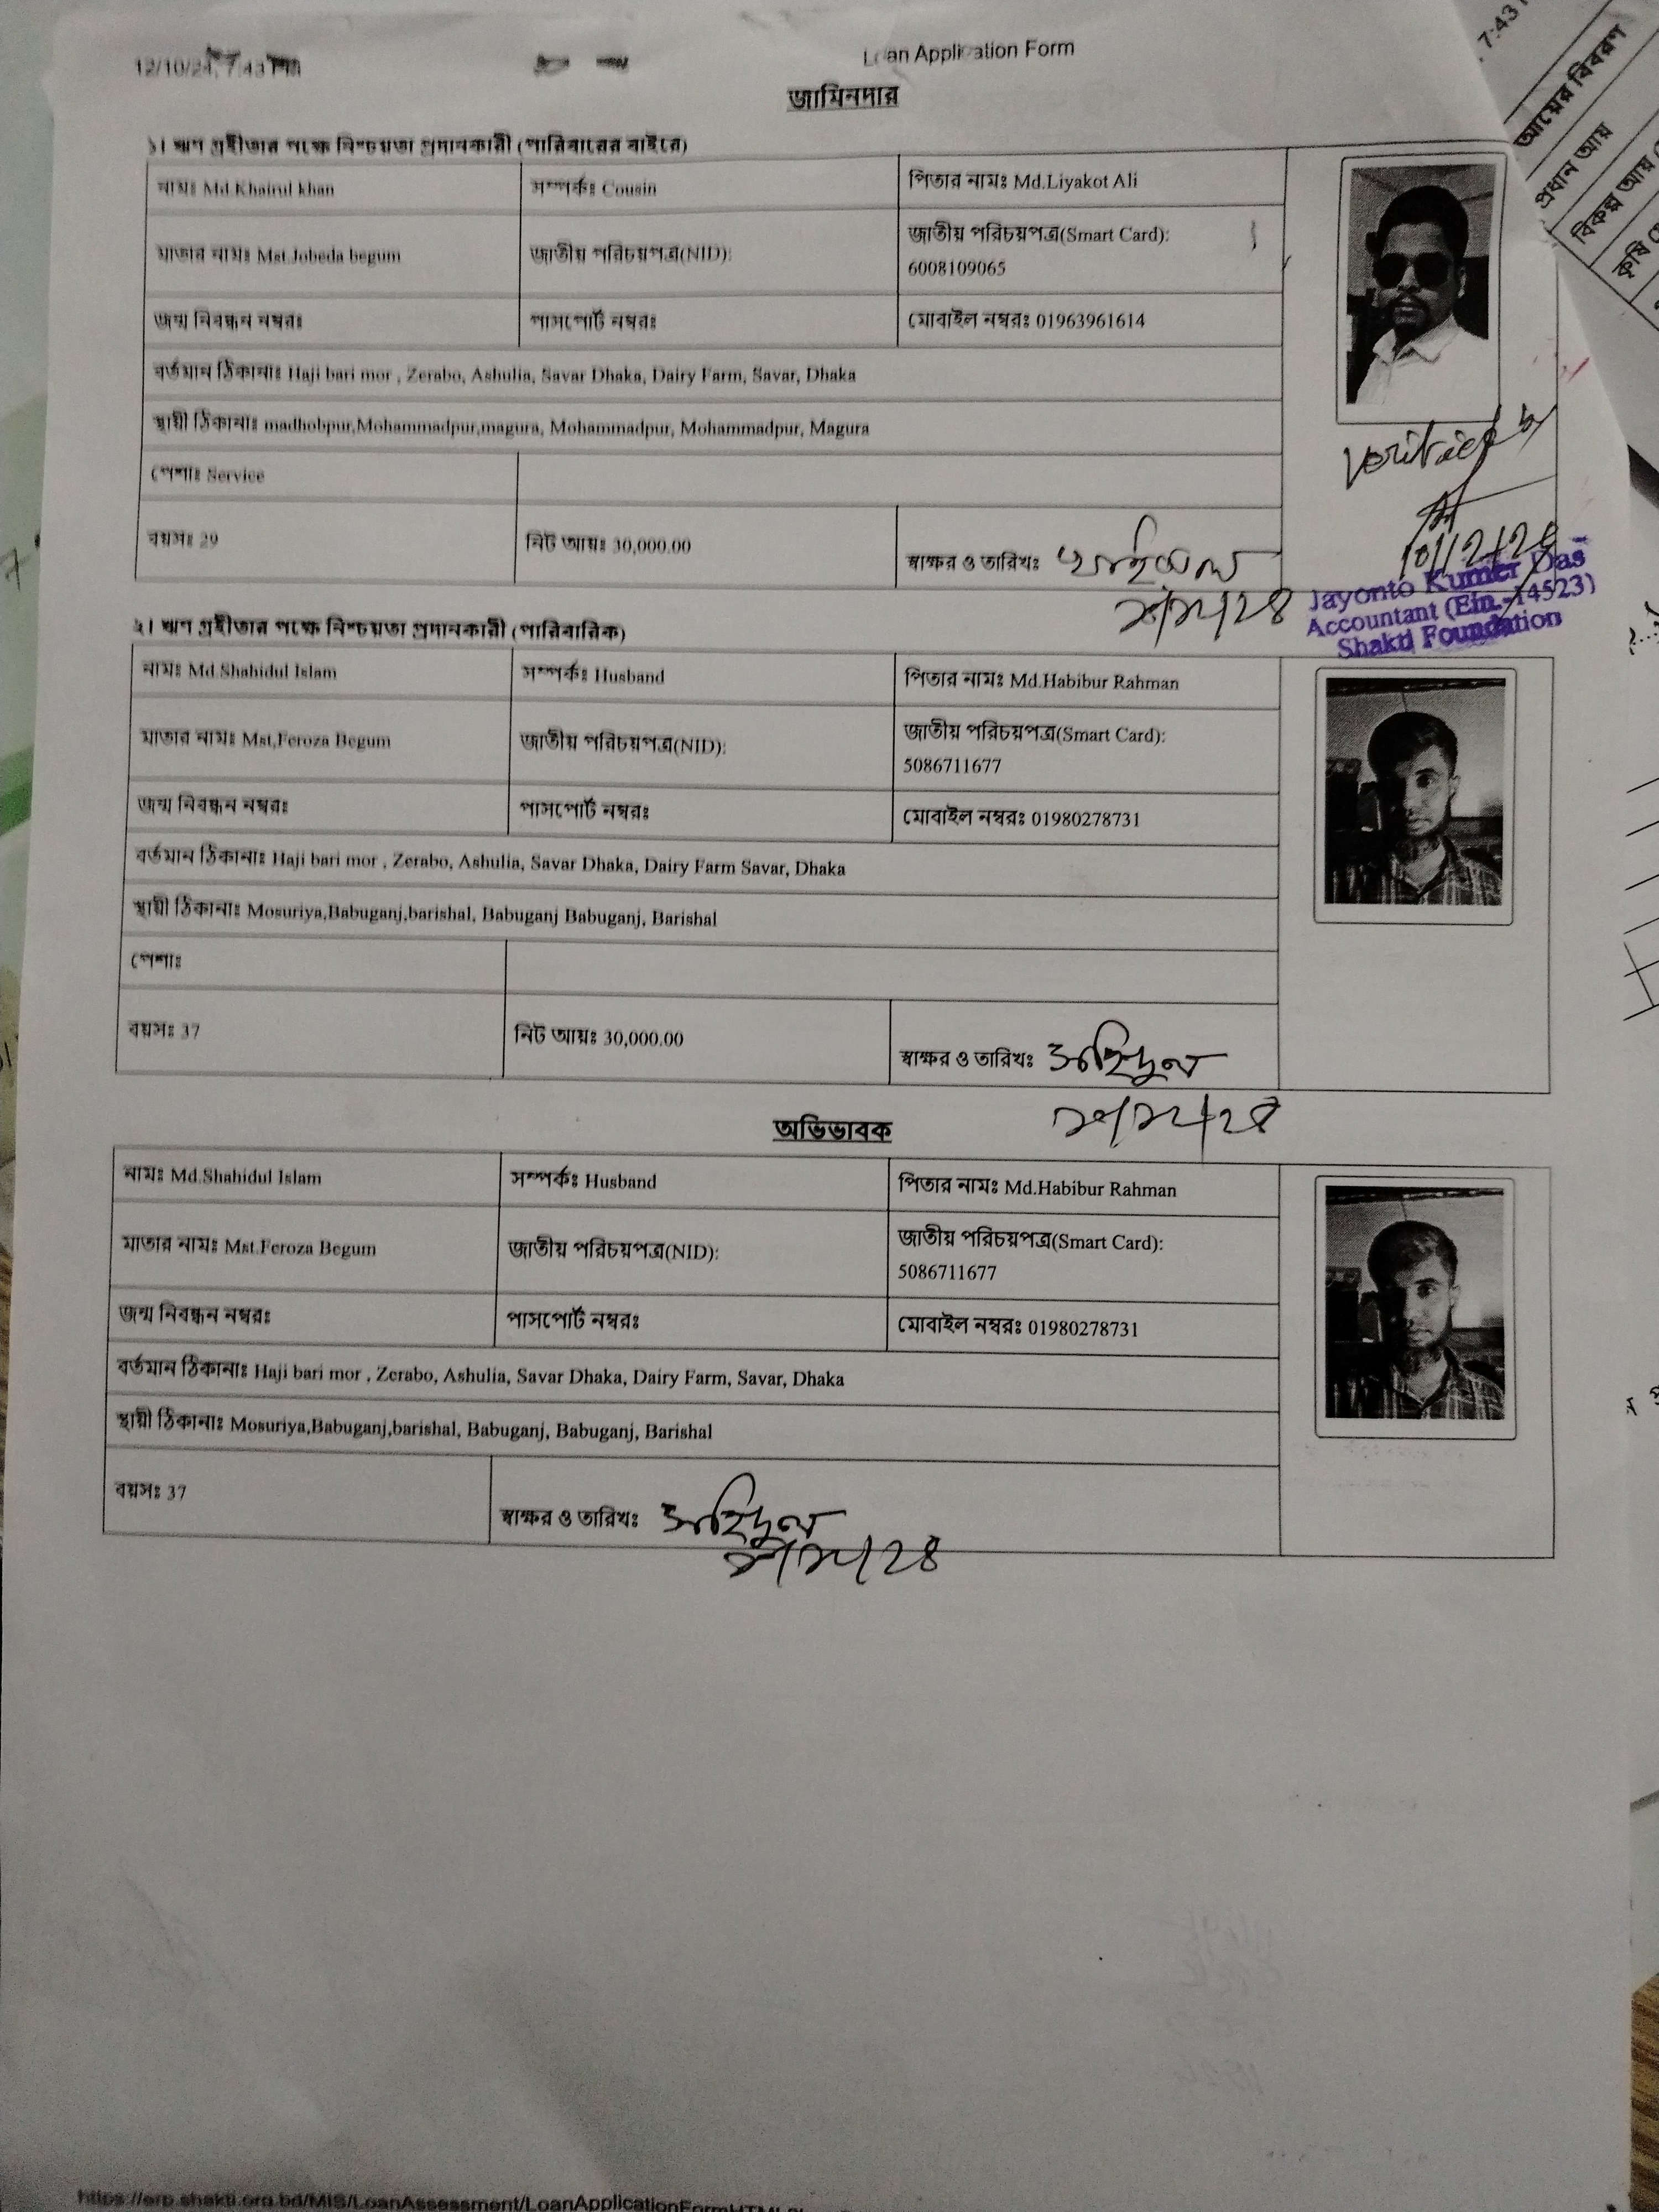 12/10/24, 7:43 PM
Loan Application Form
জামিনদার
১। ঋণ গ্রহীতার পক্ষে নিশ্চয়তা প্রদানকারী (পারিবারের বাইরে)
নামঃ Md.Khairul khan সম্পর্কঃ Cousin পিতার নামঃ Md.Liyakot Ali
মাতার নামঃ Mst.Jobeda begum জাতীয় পরিচয়পত্র(NID): জাতীয় পরিচয়পত্র(Smart Card):
6008109065
জন্ম নিবন্ধন নম্বরঃ পাসপোর্ট নম্বরঃ মোবাইল নম্বরঃ 01963961614
বর্তমান ঠিকানাঃ Haji bari mor , Zerabo, Ashulia, Savar Dhaka, Dairy Farm, Savar, Dhaka
স্থায়ী ঠিকানাঃ madhobpur,Mohammadpur,magura, Mohammadpur, Mohammadpur, Magura
Verified by
পেশাঃ Service
বয়সঃ 29 নিট আয়ঃ 30,000.00 স্বাক্ষর ও তারিখঃ খাইরুল
১০/১২/২৪
10/12/24
Jayonto Kumer Das
Accountant (Ein.-14523)
Shakti Foundation
২। ঋণ গ্রহীতার পক্ষে নিশ্চয়তা প্রদানকারী (পারিবারিক)
নামঃ Md.Shahidul Islam সম্পর্কঃ Husband পিতার নামঃ Md.Habibur Rahman
মাতার নামঃ Mst,Feroza Begum জাতীয় পরিচয়পত্র(NID): জাতীয় পরিচয়পত্র(Smart Card):
5086711677
জন্ম নিবন্ধন নম্বরঃ পাসপোর্ট নম্বরঃ মোবাইল নম্বরঃ 01980278731
বর্তমান ঠিকানাঃ Haji bari mor , Zerabo, Ashulia, Savar Dhaka, Dairy Farm Savar, Dhaka
স্থায়ী ঠিকানাঃ Mosuriya,Babuganj,barishal, Babuganj Babuganj, Barishal
পেশাঃ
বয়সঃ 37 নিট আয়ঃ 30,000.00 স্বাক্ষর ও তারিখঃ সহিদুল
১০/১২/২৪
অভিভাবক
নামঃ Md.Shahidul Islam সম্পর্কঃ Husband পিতার নামঃ Md.Habibur Rahman
মাতার নামঃ Mst.Feroza Begum জাতীয় পরিচয়পত্র(NID): জাতীয় পরিচয়পত্র(Smart Card):
5086711677
জন্ম নিবন্ধন নম্বরঃ পাসপোর্ট নম্বরঃ মোবাইল নম্বরঃ 01980278731
বর্তমান ঠিকানাঃ Haji bari mor , Zerabo, Ashulia, Savar Dhaka, Dairy Farm, Savar, Dhaka
স্থায়ী ঠিকানাঃ Mosuriya,Babuganj,barishal, Babuganj, Babuganj, Barishal
বয়সঃ 37 স্বাক্ষর ও তারিখঃ সহিদুল
১০/১২/২৪
7:43
আয়ের বিবরণ
প্রধান আয়
বিকল্প আয়
কৃষি
https://erp.shakti.org.bd/MIS/LoanAssessment/LoanApplicationFormHTML